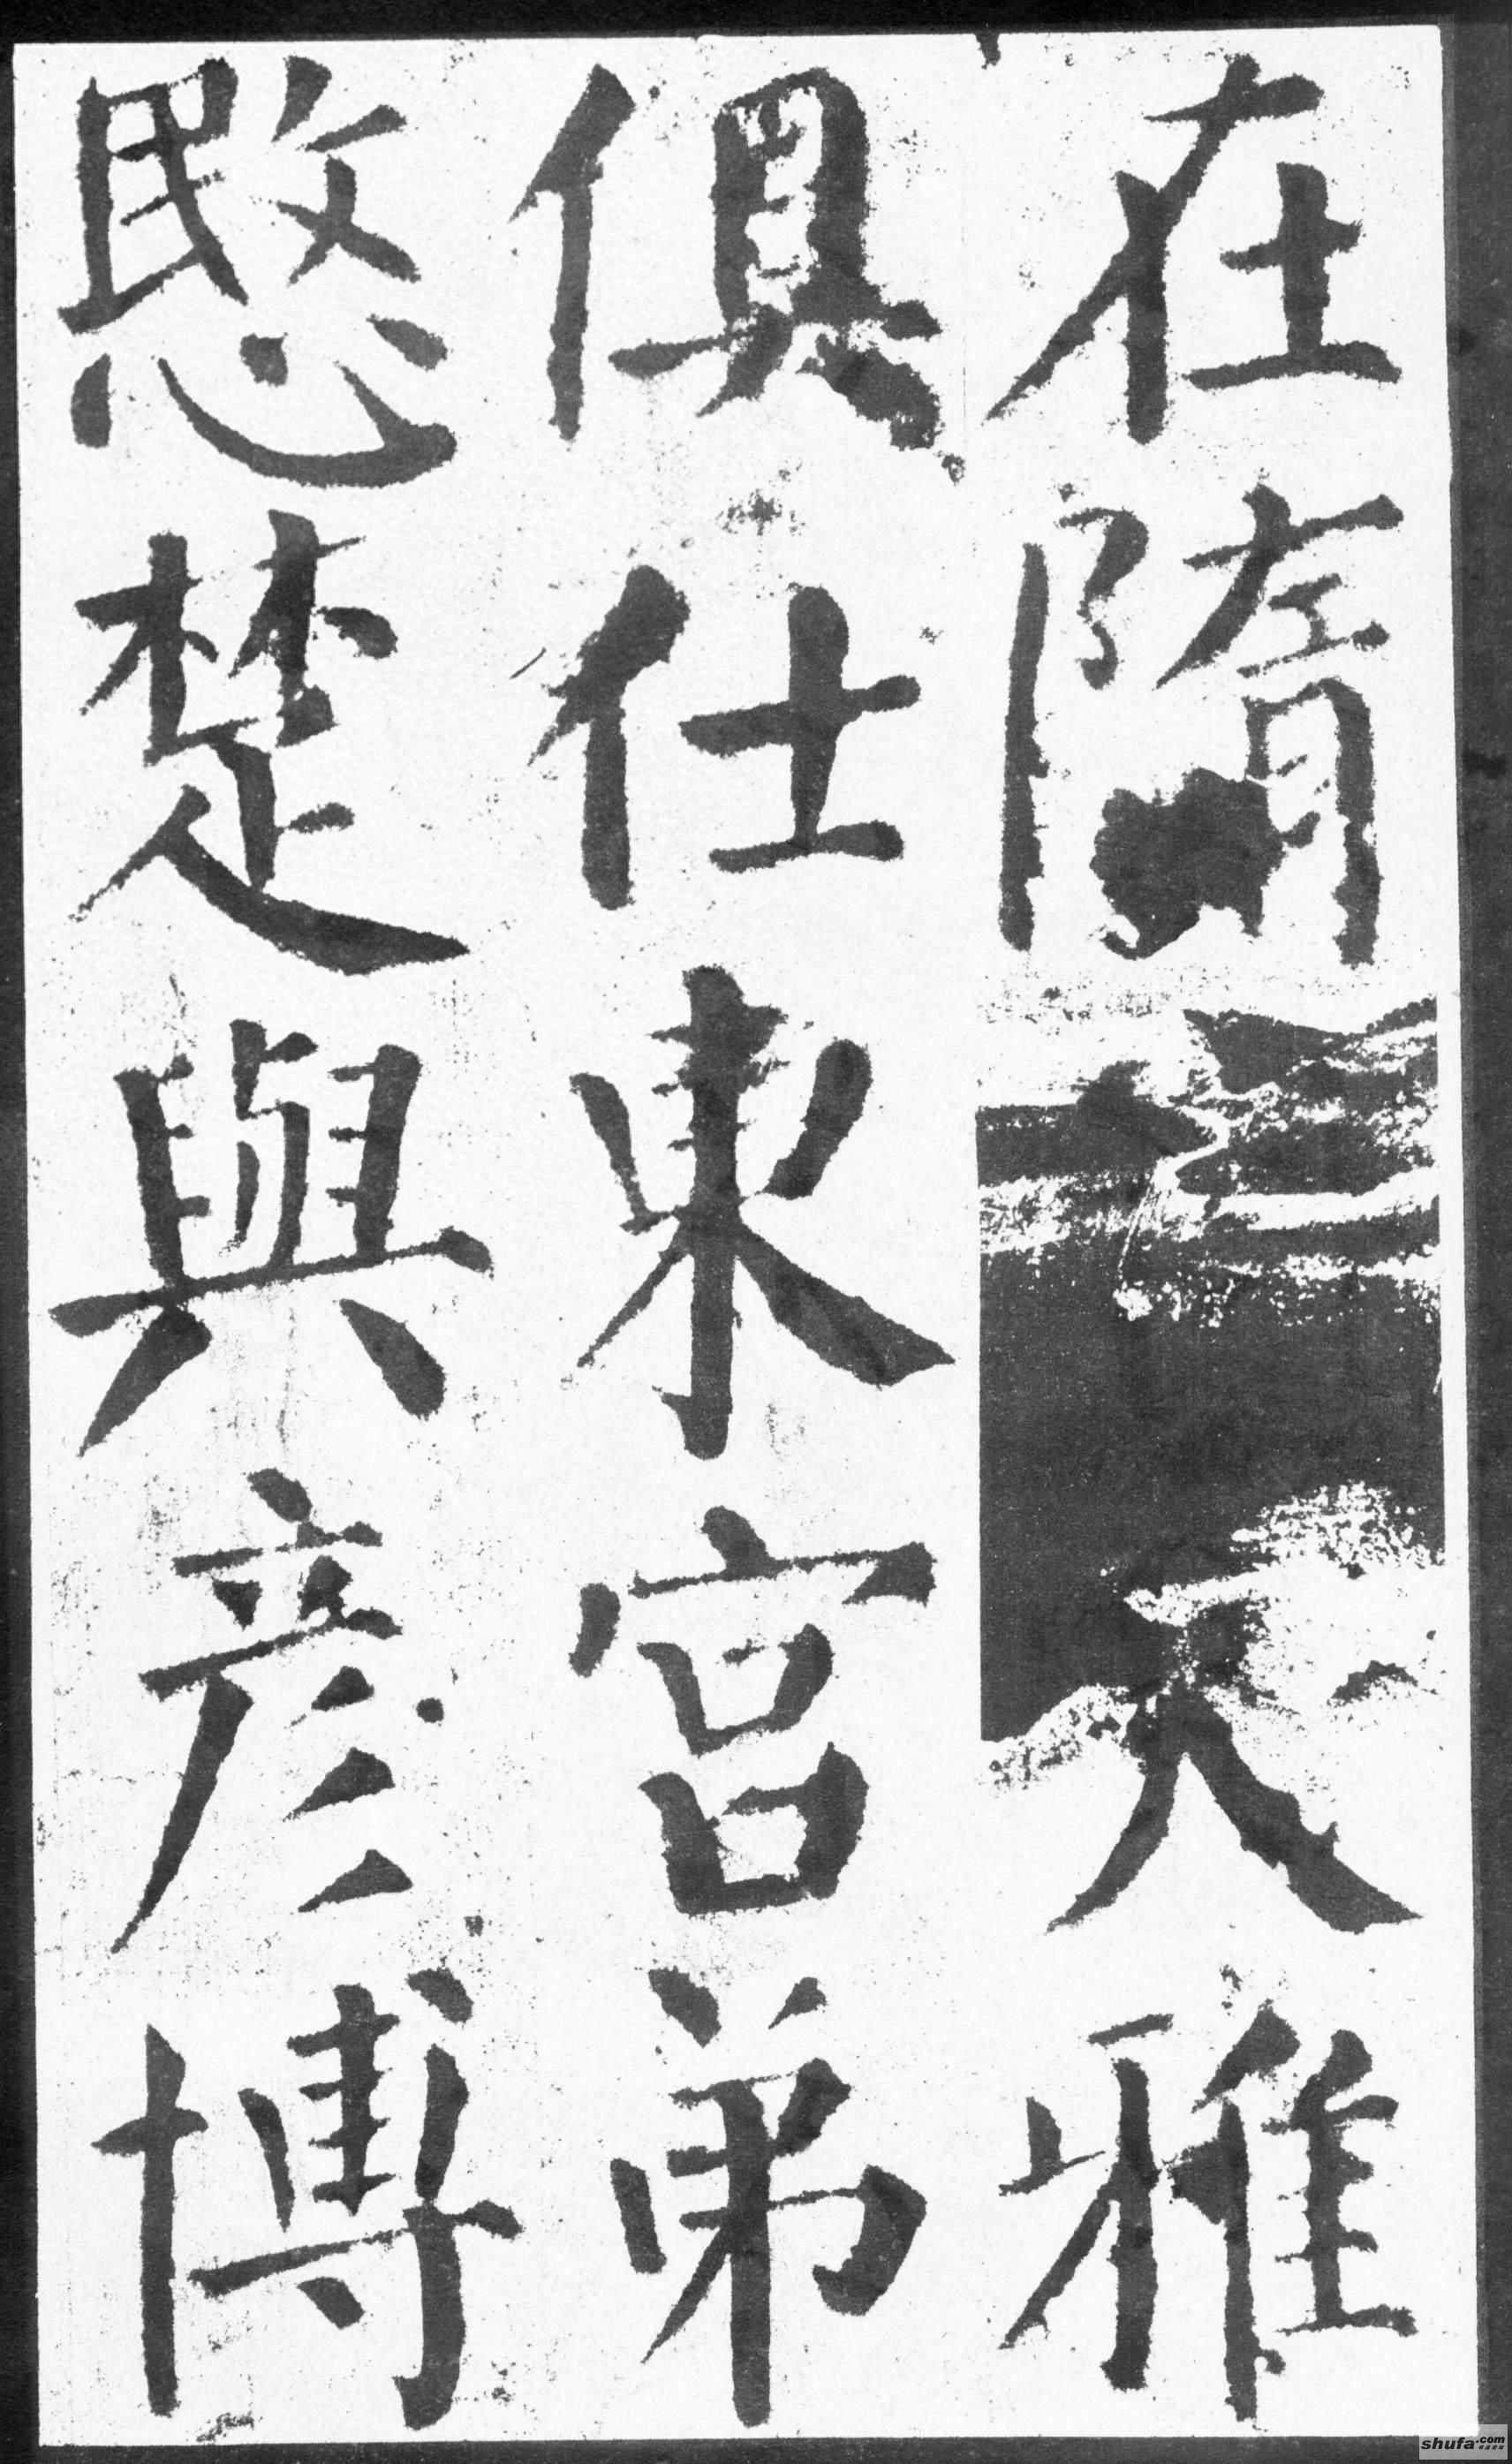 在隋大雅
俱仕東宮弟
愍楚與彦博
shufa.com